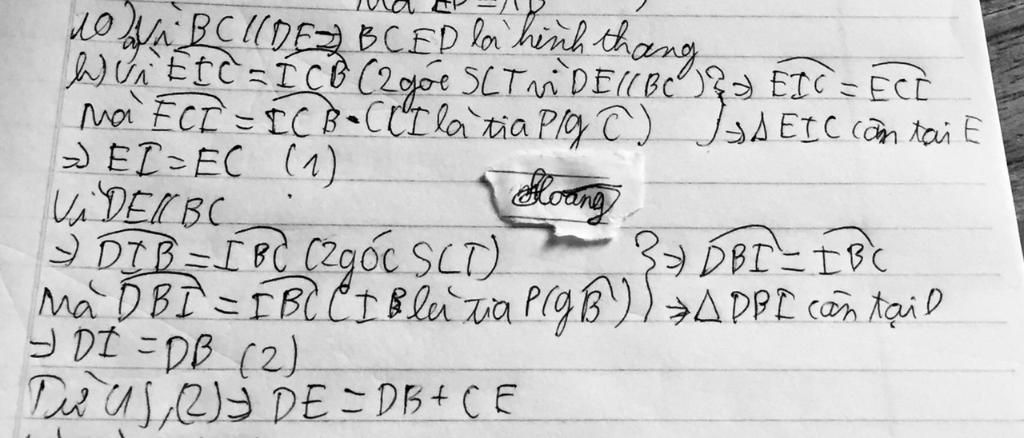 Mà EP = AB
10) a) Vì BC // DE => BCED là hình thang
b) Vì EIC = ICB (2 góc SLT vì DE // BC) } => EIC = ECI
Mà ECI = ICB (CI là tia P/g C) } => Δ EIC cân tại E
=> EI = EC (1)
Hoang
Vì DE // BC
=> DIB = IBC (2 góc SLT) } => DBI = IBC
Mà DBI = IBC (IB là tia P/g B) } => Δ DBI cân tại D
=> DI = DB (2)
Từ (1), (2) => DE = DB + CE